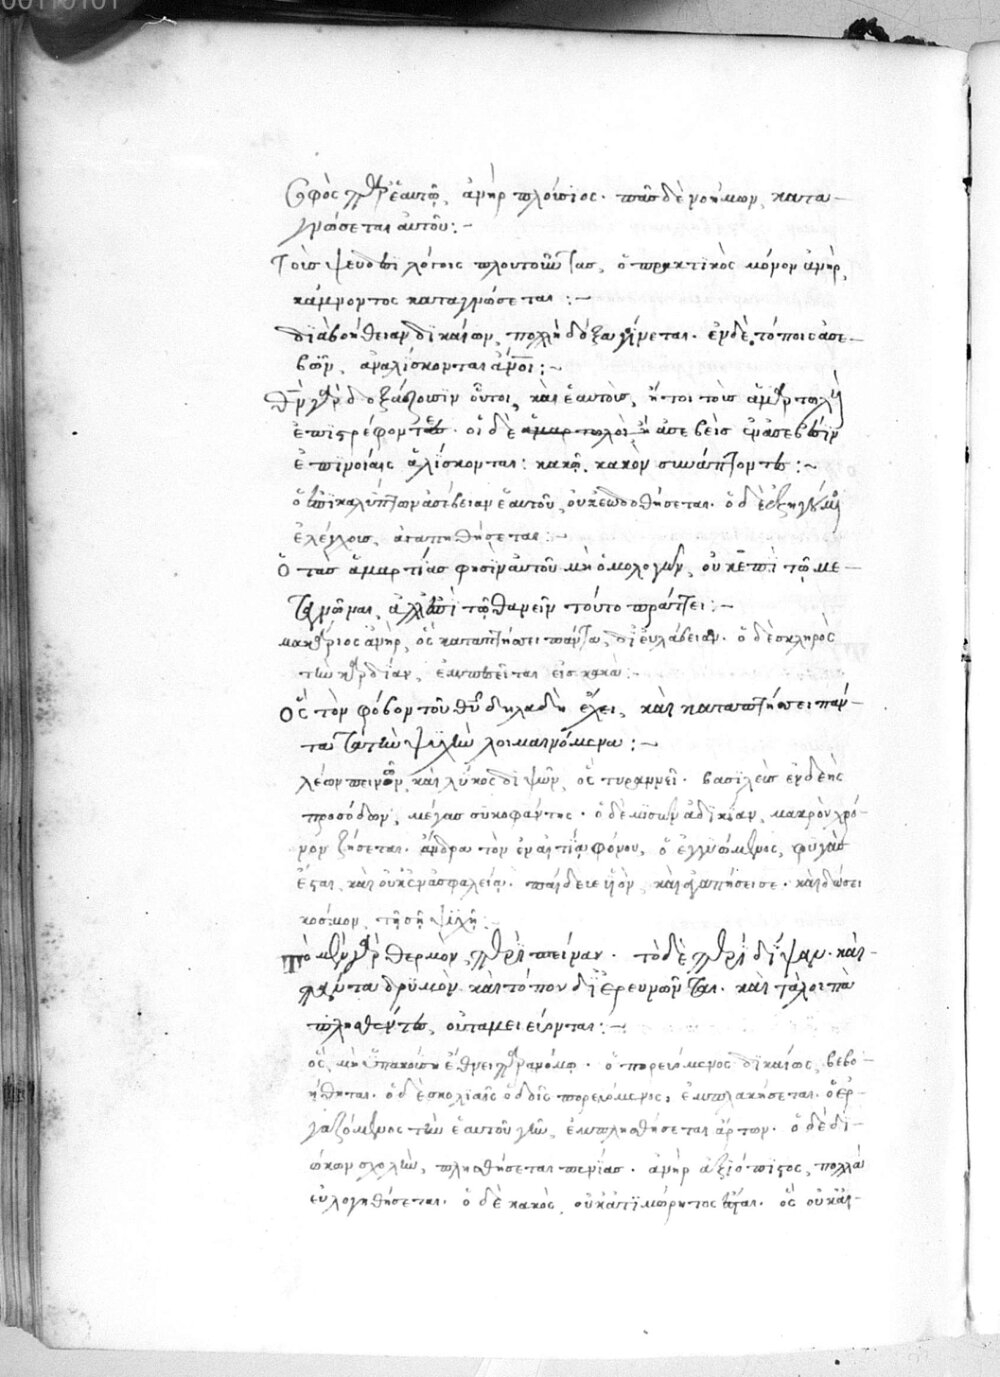 00110101
Σοφὸς παρ' ἑαυτῷ, ἀνὴρ πλούσιος· πᾶς δὲ νοήμων, κατα-
γνώσεται αὐτοῦ:~
Τοῖς ψευδέσι λόγοις πλουτοῦντας, ὁ πρακτικὸς μόνον ἀνὴρ,
κάμνοντος καταγνώσεται:~
διὰ βοήθειαν δικαίων, πολλὴ δόξα γίνεται· ἐν δὲ τόποις ἀσε-
βῶν, ἁλίσκονται ἄνοι:~
Θν γὰρ δοξάζουσιν οὗτοι, καὶ ἑαυτοὺς, ἤτοι τοὺς ἁμαρτωλ
ἐπιστρέφοντες· οἱ δὲ ἁμαρτωλοὶ ἢ ἀσεβεῖς ἐν ἀσεβέσιν
ἐπινοίαις ἁλίσκονται: κακῷ κακὸν συνάπτοντες:~
ὁ ἐπικαλύπτων ἀσέβειαν ἑαυτοῦ, οὐκ εὐοδωθήσεται· ὁ δὲ ἐξηγούμ
ἐλέγχους, ἀγαπηθήσεται:~
Ὁ τὰς ἁμαρτίας φησὶν αὐτοῦ μὴ ὁμολογῶν, οὐκ ἐπὶ τῷ με-
ταγνῶναι, ἀλλ' ἐπὶ τῷ θανεῖν τοῦτο πράττει:~
μακάριος ἀνὴρ, ὃς καταπτήσσει πάντα, δι' εὐλάβειαν· ὁ δὲ σκληρὸς
τὴν καρδίαν, ἐμπεσεῖται εἰς κακά:
Ὃς τὸν φόβον τοῦ θυ δηλαδὴ ἔχει, καὶ καταπτήσσει πάν-
τα τὰ τὴν ψυχὴν λοιμαινόμενα:~
λέων πεινῶν, καὶ λύκος διψῶν, ὃς τυραννεῖ· βασιλεὺς ἐνδεὴς
προσόδων, μέγας συκοφάντης· ὁ δὲ μισῶν ἀδικίαν, μακρὸν χρό-
νον ζήσεται· ἄνδρα τὸν ἐν αἰτίᾳ φόνου, ὁ ἐγγυώμενος, φυγὰς
ἔσται, καὶ οὐκ ἐν ἀσφαλείᾳ· παίδευε υἱὸν, καὶ ἀγαπήσει σε· καὶ δώσει
κόσμον τῇ σῇ ψυχῇ:
Τὸ μὲν γὰρ θερμὸν, παρὰ πείναν· τὸ δὲ παρὰ δίψαν· καὶ
πάντα δρυμὸν καὶ τόπον διερευνῶνται· καὶ τἄλοιπα
πλησθέντες, οὐ ταμιεύονται:~
ὃς μὴ ὑπακούσῃ ἔθνει παρανόμῳ· ὁ πορευόμενος δικαίως, βεβο-
ήθηται· ὁ δὲ σκολιαῖς ὁδοῖς πορευόμενος, ἐμπλακήσεται· ὁ ἐρ-
γαζόμενος τὴν ἑαυτοῦ γῆν, ἐμπλησθήσεται ἄρτων· ὁ δὲ δι-
ώκων σχολὴν, πλησθήσεται πενίας· ἀνὴρ ἀξιόπιστος, πολλὰ
εὐλογηθήσεται· ὁ δὲ κακὸς, οὐκ ἀτιμώρητος ἔσται· ὃς οὐκ αἰ-